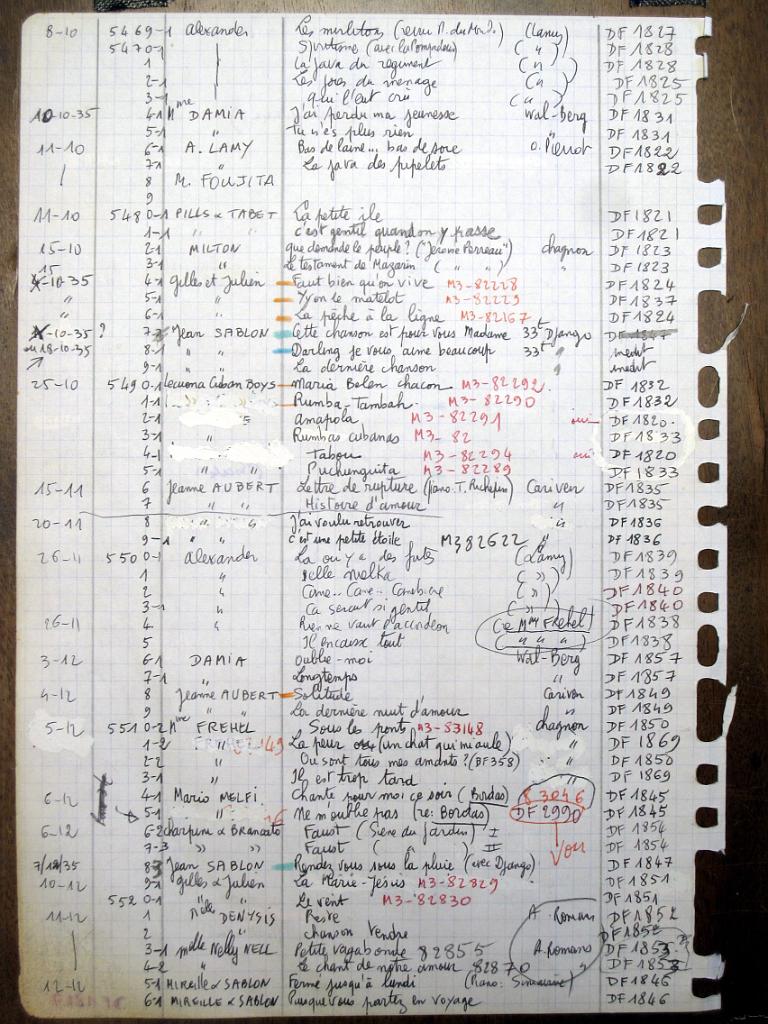 8-10 5469-1 Alexander Les mirlitons (revue P. du Mo D.) (Lamy) DF 1827
5470-1 (avec la Pompadour) (") DF 1828
1 La java du regiment (") DF 1828
2-1 Les joies du menage (") DF 1825
3-1 qui l'eut cru (") DF 1825
10-10-35 4-1 Mme DAMIA J'ai perdu ma jeunesse Wal-Berg DF 1831
5-1 " Tu n'es plus rien DF 1831
11-10 6-1 A. LAMY Bas de laine... bas de soie O. Pierrot DF 1822
7-1 " La java des pipelets DF 1822
8 M. FOUJITA
9
11-10 5480-1 PILLS & TABET La petite ile DF 1821
1-1 " " c'est gentil quand on y passe DF 1821
15-10 2-1 MILTON que demande le peuple? ("Jerome Perreau") chagnon DF 1823
15 3-1 " Le testament de Mazarin ( " " ) " DF 1823
-10-35 4-1 Gilles et Julien Faut bien qu'on vive M3-82228 DF 1824
" 5-1 " Yvon le matelot M3-82229 DF 1837
" 6-1 " La pêche à la ligne M3-82167 DF 1824
-10-35 ? 7-2 Jean SABLON Cette chanson est pour vous Madame 33t Django DF 1847
ou 18-10-35 8-1 " Darling je vous aime beaucoup 33t " inedit
9-1 " " La dernière chanson inedit
25-10 5490-1 Lecuona Cuban Boys Maria Belen chacon M3-82292 DF 1832
1-1 Rumba-Tambah M3-82290 DF 1832
2-1 amapola M3-82291 oui DF 1820
3-1 " Rumbas cubanas M3-82 DF 1833
4-1 Tabou M3-82294 oui DF 1820
5-1 " " Puchunguita M3-82289 DF 1833
15-11 6 Jeanne AUBERT Lettre de rupture (piano. T. Richepin) Cariven DF 1835
7 " " Histoire d'amour " DF 1835
20-11 8 " " J'ai voulu retrouver " DF 1836
9-1 " " c'est une petite étoile M3 82622 " DF 1836
26-11 5500-1 Alexander La ou y a des fritz (Lamy) DF 1839
1 " (") DF 1839
2 " Cane.. Cane.. Canebiere (") DF 1840
3-1 " Ca serait si gentil (") DF 1840
26-11 4 " Rien ne vaut l'accordeon (re Mme Frehel) DF 1838
5 Il encaisse tout (" " ") DF 1838
3-12 6-1 DAMIA oublie-moi Wal-Berg DF 1857
7-1 " Longtemps " DF 1857
4-12 8 Jeanne AUBERT Solitude Cariven DF 1849
9 " La dernière nuit d'amour " DF 1849
5-12 5510-2 Mme FREHEL Sous les ponts M3-83148 chagnon DF 1850
1-2 " 149 La peur (un chat qui miaule) " DF 1869
2-2 " Ou sont tous mes amants? (DF 358) " DF 1850
3-1 " Il est trop tard " DF 1869
6-12 4-1 Mario MELFI Chante pour moi ce soir (Bordas) 83046 DF 1845
5-1 " Ne m'oublie pas (re: Bordas) DF 2990 DF 1845
6-12 6-2 charpini & Brancato Faust (Scène du Jardin) I DF 1854
7-3 " " Faust ( " ) II Vou DF 1854
7/12/35 8-3 Jean SABLON Rendez vous sous la pluie (avec Django) DF 1847
10-12 9-1 Gilles & Julien La Marie-Jésus M3-82829 DF 1851
5520-1 " " Le vent M3-82830 DF 1851
11-12 1 Melle DENYSIS Reste A. Romans DF 1852
2 " chanson tendre DF 1852
3-1 Melle Nelly NELL Petite vagabonde 82855 A. Romans DF 1853
4-2 " Le chant de notre amour 82870 DF 1853
12-12 5-1 MIREILLE & SABLON Ferme jusqu'à lundi DF 1846
6-1 MIREILLE & SABLON Puisque vous partez en voyage DF 1846